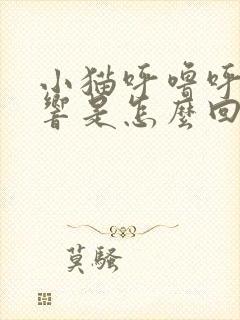 小猫呼噜呼
響是怎麼回
莫騷